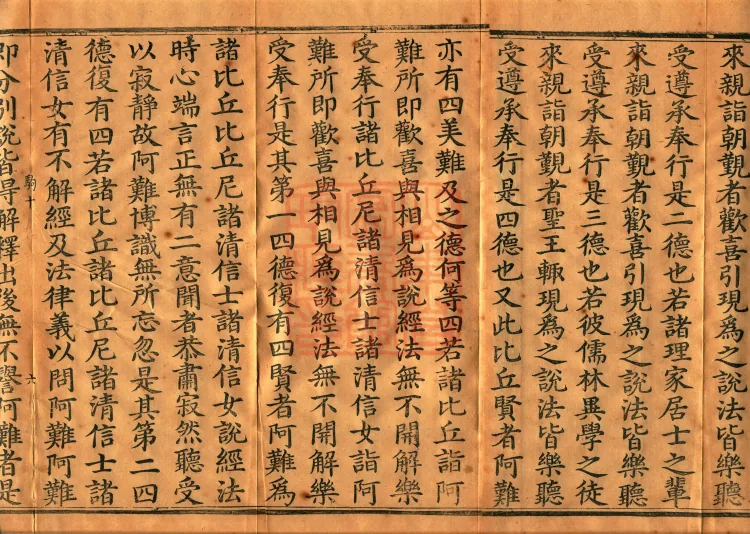 來親詣朝覲者歡喜引現為之說法皆樂聽
受遵承奉行是二德也若諸理家居士之輩
來親詣朝覲者歡喜引現為之說法皆樂聽
受遵承奉行是三德也若彼儒林異學之徒
來親詣朝覲者聖王輙現為之說法皆樂聽
受遵承奉行是四德也又此比丘賢者阿難
亦有四美難及之德何等四若諸比丘詣阿
難所即歡喜與相見為說經法無不開解樂
受奉行諸比丘尼諸清信士諸清信女詣阿
難所即歡喜與相見為說經法無不開解樂
受奉行是其第一四德復有四賢者阿難為
諸比丘比丘尼諸清信士諸清信女說經法
時心端言正無有二意聞者恭肅寂然聽受
以寂靜故阿難博識無所忘忽是其第二四
德復有四若諸比丘諸比丘尼諸清信士諸
清信女有不解經及法律義以問阿難阿難
十 六
即分別說皆得解釋出後無不譽阿難者是